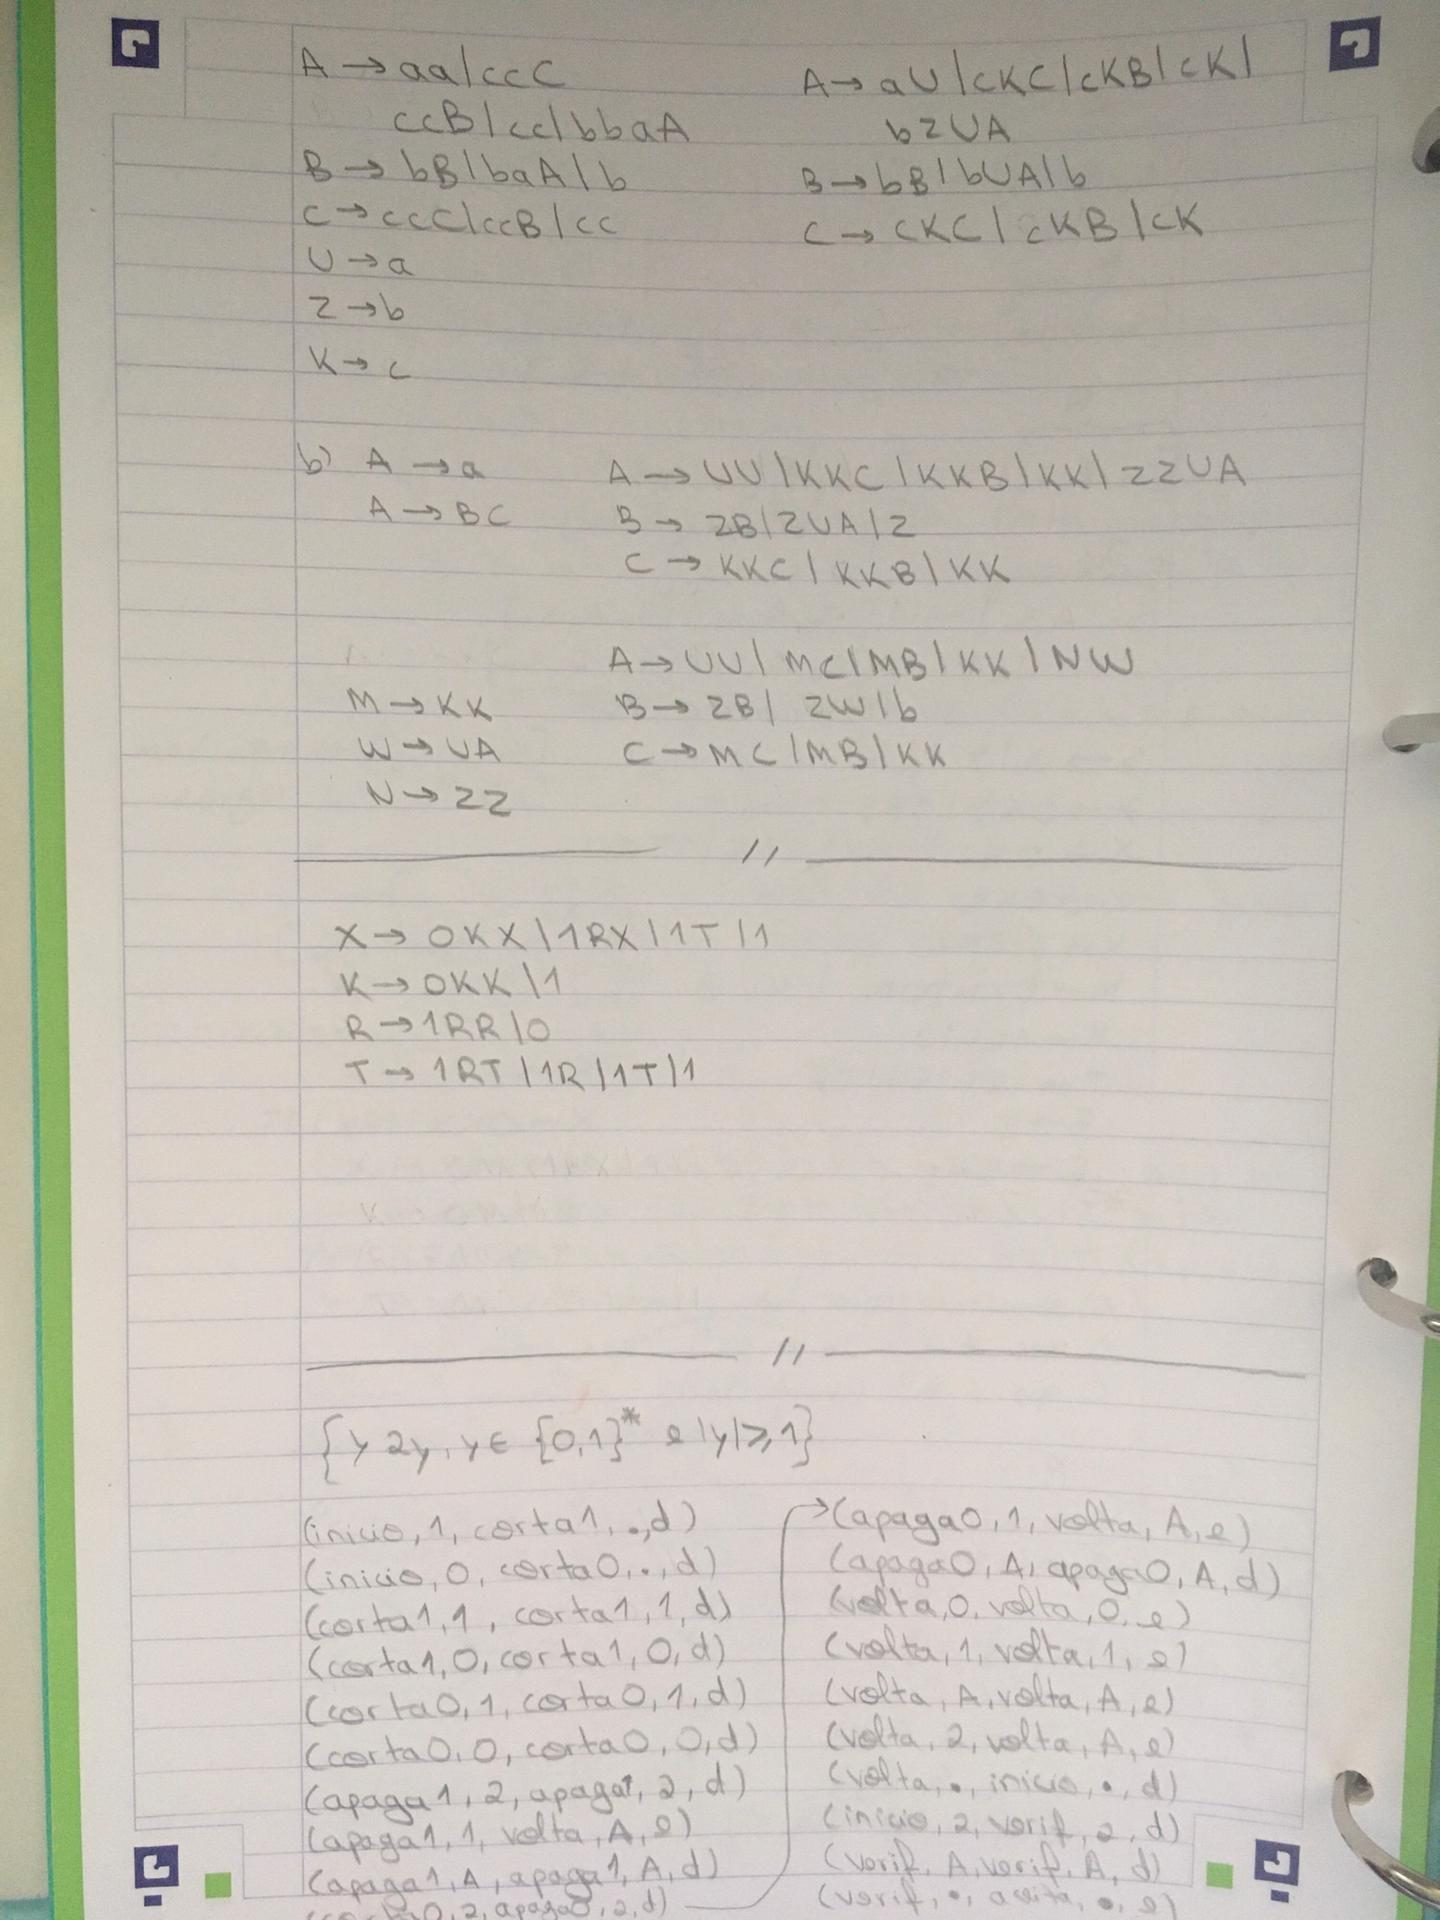 A → aa|ccC
ccB|cc|bbaA
B → bB|baA|b
C → ccC|ccB|cc
U → a
Z → b
K → c
A → aU|cKC|cKB|cK|
bZUA
B → bB|bUA|b
C → cKC|cKB|cK
b) A → a
A → BC
A → UU|KKC|KKB|KK|ZZUA
B → ZB|ZUA|Z
C → KKC|KKB|KK
M → KK
W → UA
N → ZZ
A → UU|MC|MB|KK|NW
B → ZB|ZW|b
C → MC|MB|KK
//
X → 0KX|1RX|1T|1
K → 0KK|1
R → 1RR|0
T → 1RT|1R|1T|1
//
{y2y, y∈ {0,1}* e |y|≥1}
(inicio, 1, corta1, ., d)
(inicio, 0, corta0, ., d)
(corta1, 1, corta1, 1, d)
(corta1, 0, corta1, 0, d)
(corta0, 1, corta0, 1, d)
(corta0, 0, corta0, 0, d)
(apaga1, 2, apaga1, 2, d)
(apaga1, 1, volta, A, e)
(apaga1, A, apaga1, A, d)
(corta0, 2, apaga0, 2, d)
→(apaga0, 1, volta, A, e)
(apaga0, A, apaga0, A, d)
(volta, 0, volta, 0, e)
(volta, 1, volta, 1, e)
(volta, A, volta, A, e)
(volta, 2, volta, A, e)
(volta, ., inicio, ., d)
(inicio, 2, verif, 2, d)
(verif, A, verif, A, d)
(verif, ., aceita, ., e)